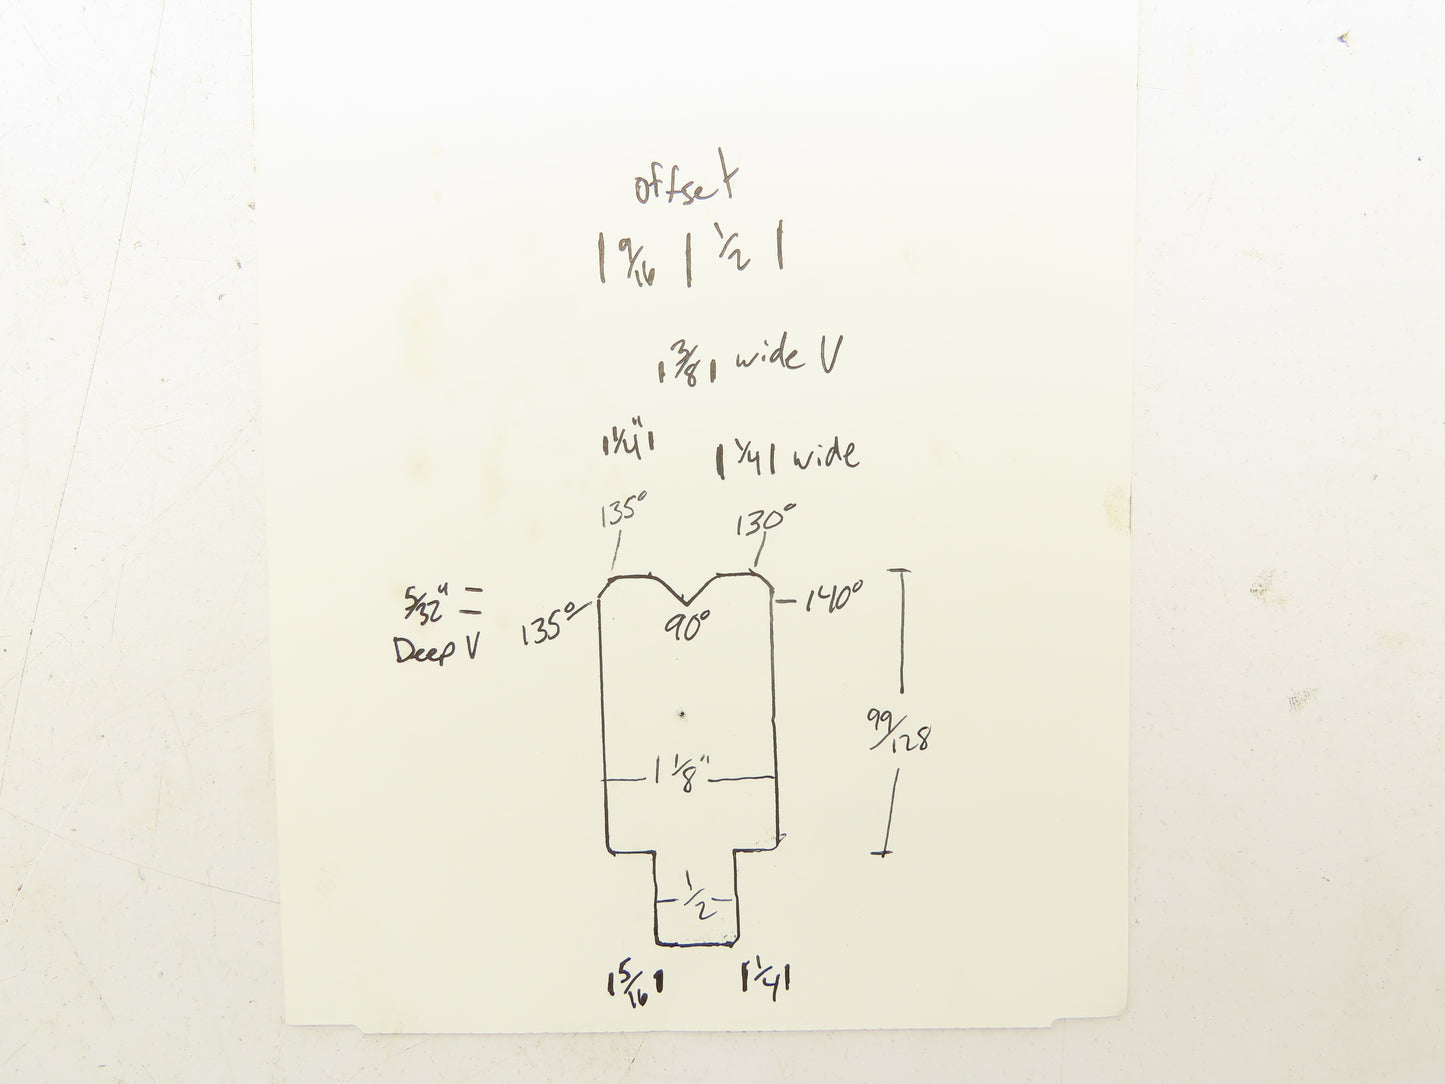 offset
| 9/16 | 1/2 |
| 3/8 | wide V
| 1/4" |
| 1/4 | wide
135°
130°
5/32" =
Deep V
135°
90°
140°
99/128
1 1/8"
1/2
| 5/16 |
| 1/4 |